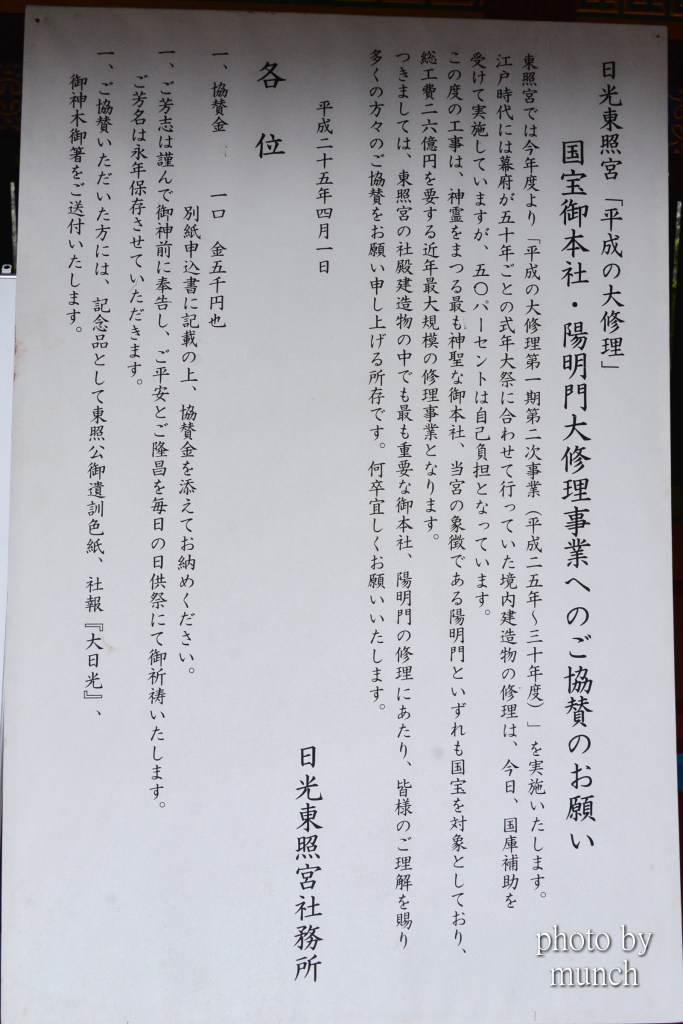 日光東照宮「平成の大修理」
国宝御本社・陽明門大修理事業へのご協賛のお願い
東照宮では今年度より「平成の大修理第一期第二次事業（平成二五年～三十年度）」を実施いたします。
江戸時代には幕府が五十年ごとの式年大祭に合わせて行っていた境内建造物の修理は、今日、国庫補助を
受けて実施していますが、五〇パーセントは自己負担となっています。
この度の工事は、神霊をまつる最も神聖な御本社、当宮の象徴である陽明門といずれも国宝を対象としており、
総工費二六億円を要する近年最大規模の修理事業となります。
つきましては、東照宮の社殿建造物の中でも最も重要な御本社、陽明門の修理にあたり、皆様のご理解を賜り
多くの方々のご協賛をお願い申し上げる所存です。何卒宜しくお願いいたします。
平成二十五年四月一日
日光東照宮社務所
各位
一、協賛金　一口　金五千円也
別紙申込書に記載の上、協賛金を添えてお納めください。
一、ご芳志は謹んで御神前に奉告し、ご平安とご隆昌を毎日の日供祭にて御祈祷いたします。
ご芳名は永年保存させていただきます。
一、ご協賛いただいた方には、記念品として東照公御遺訓色紙、社報『大日光』、
御神木御箸をご送付いたします。
photo by
munch